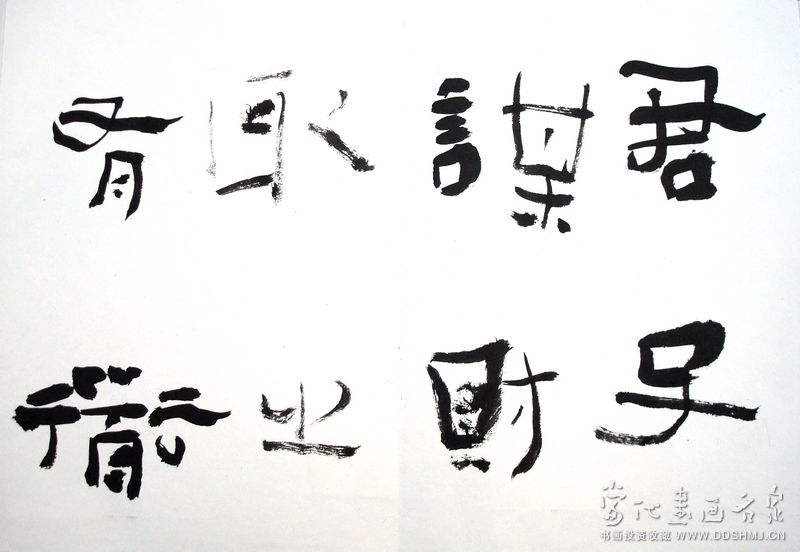 君子
謀財
取之
有衜
當代書画名家
书画投资收藏 WWW.DDSHMJ.CN